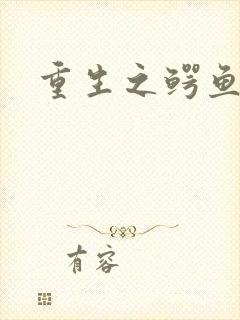 重生之鳄鱼
有容